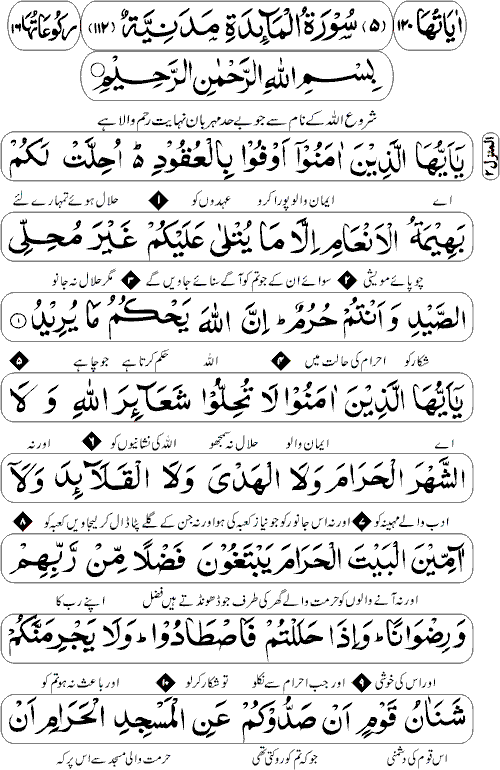 اٰیَاتُهَا ۱۲۰ (۵) سُوْرَةُ الْمَآئِدَةِ مَدَنِیَّةٌ (۱۱۲) رُكُوْعَاتُهَا ۱۶
بِسْمِ اللّٰهِ الرَّحْمٰنِ الرَّحِیْمِ
شروع اللہ کے نام سے جو بے حد مہربان نہایت رحم والا ہے
یٰۤاَیُّهَا الَّذِیْنَ اٰمَنُوْۤا اَوْفُوْا بِالْعُقُوْدِ ؕ اُحِلَّتْ لَكُمْ
المنزل ۲
اے ایمان والو پورا کرو عہدوں کو ۱ حلال ہوئے تمہارے لئے
بَهِیْمَةُ الْاَنْعَامِ اِلَّا مَا یُتْلٰی عَلَیْكُمْ غَیْرَ مُحِلِّی
چوپائے مویشی ۲ سوائے ان کے جو تم کو آگے سنائے جاویں گے ۳ مگر حلال نہ جانو
الصَّیْدِ وَ اَنْتُمْ حُرُمٌ ؕ اِنَّ اللّٰهَ یَحْكُمُ مَا یُرِیْدُ ۱
شکار کو احرام کی حالت میں ۴ اللہ حکم کرتا ہے جو چاہے ۵
یٰۤاَیُّهَا الَّذِیْنَ اٰمَنُوْا لَا تُحِلُّوْا شَعَآئِرَ اللّٰهِ وَ لَا
اے ایمان والو حلال نہ سمجھو اللہ کی نشانیوں کو ۶ اور نہ
الشَّهْرَ الْحَرَامَ وَلَا الْهَدْیَ وَلَا الْقَلَآئِدَ وَلَاۤ
ادب والے مہینہ کو ۷ اور نہ اس جانور کو جو نیاز کعبہ کی ہو اور نہ جن کے گلے پٹا ڈال کر لیجاویں کعبہ کو ۸
آٰمِّیْنَ الْبَیْتَ الْحَرَامَ یَبْتَغُوْنَ فَضْلًا مِّنْ رَّبِّهِمْ
اور نہ آنے والوں کو حرمت والے گھر کی طرف جو ڈھونڈتے ہیں فضل اپنے رب کا
وَ رِضْوَانًا ؕ وَ اِذَا حَلَلْتُمْ فَاصْطَادُوْا ؕ وَلَا یَجْرِمَنَّكُمْ
اور اس کی خوشی ۹ اور جب احرام سے نکلو تو شکار کر لو ۱۰ اور باعث نہ ہو تم کو
شَنَاٰنُ قَوْمٍ اَنْ صَدُّوْكُمْ عَنِ الْمَسْجِدِ الْحَرَامِ اَنْ
اس قوم کی دشمنی جو کہ تم کو روکتی تھی حرمت والی مسجد سے اس پر کہ